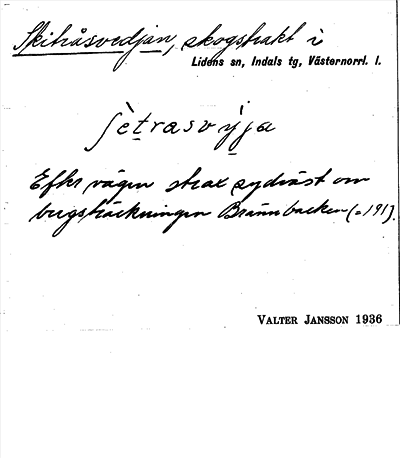 Skiråsvedjan, skogstrakt i
Lidens sn, Indals tg, Västernorrl. l.
ʃètrasvýja
Efter vägen strax sydväst om
bergsträckningen Brännbacken (o 191).
VALTER JANSSON 1936